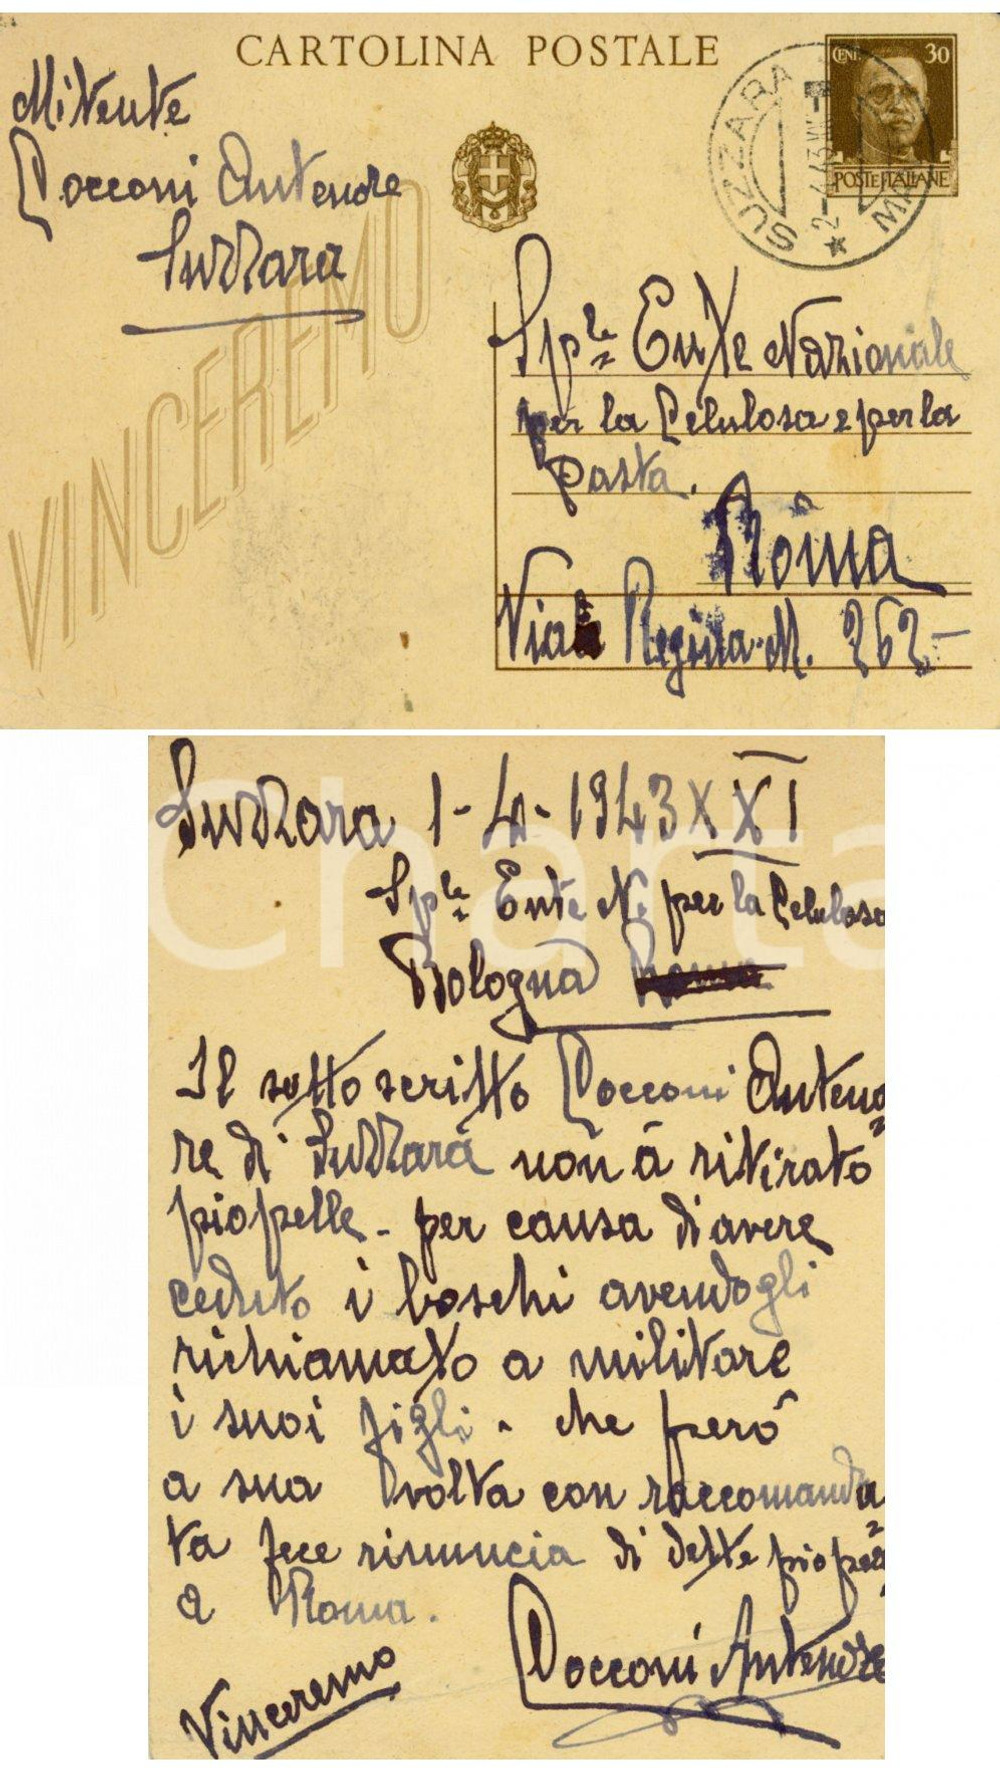 CARTOLINA POSTALE
CENT. 30
POSTE ITALIANE
SUZZARA
Mitente
Cocconi Antenore
Suzzara
VINCEREMO
Sple Ente Nazionale
per la Celulosa e per la
Pasta.
Roma
Viale Regina M. 262-
Suzzara 1-4-1943 XXI
Sple Ente N. per la Celulosa
Bologna
Il sotto scritto Cocconi Anteno
re di Suzzara non à ritirato
pioppelle - per causa di avere
ceduto i boschi avendogli
richiamato a militare
i suoi figli - che però
a sua volta con raccomanda
ta fece rinuncia di dette
a Roma.
Vinceremo
Cocconi Antenore